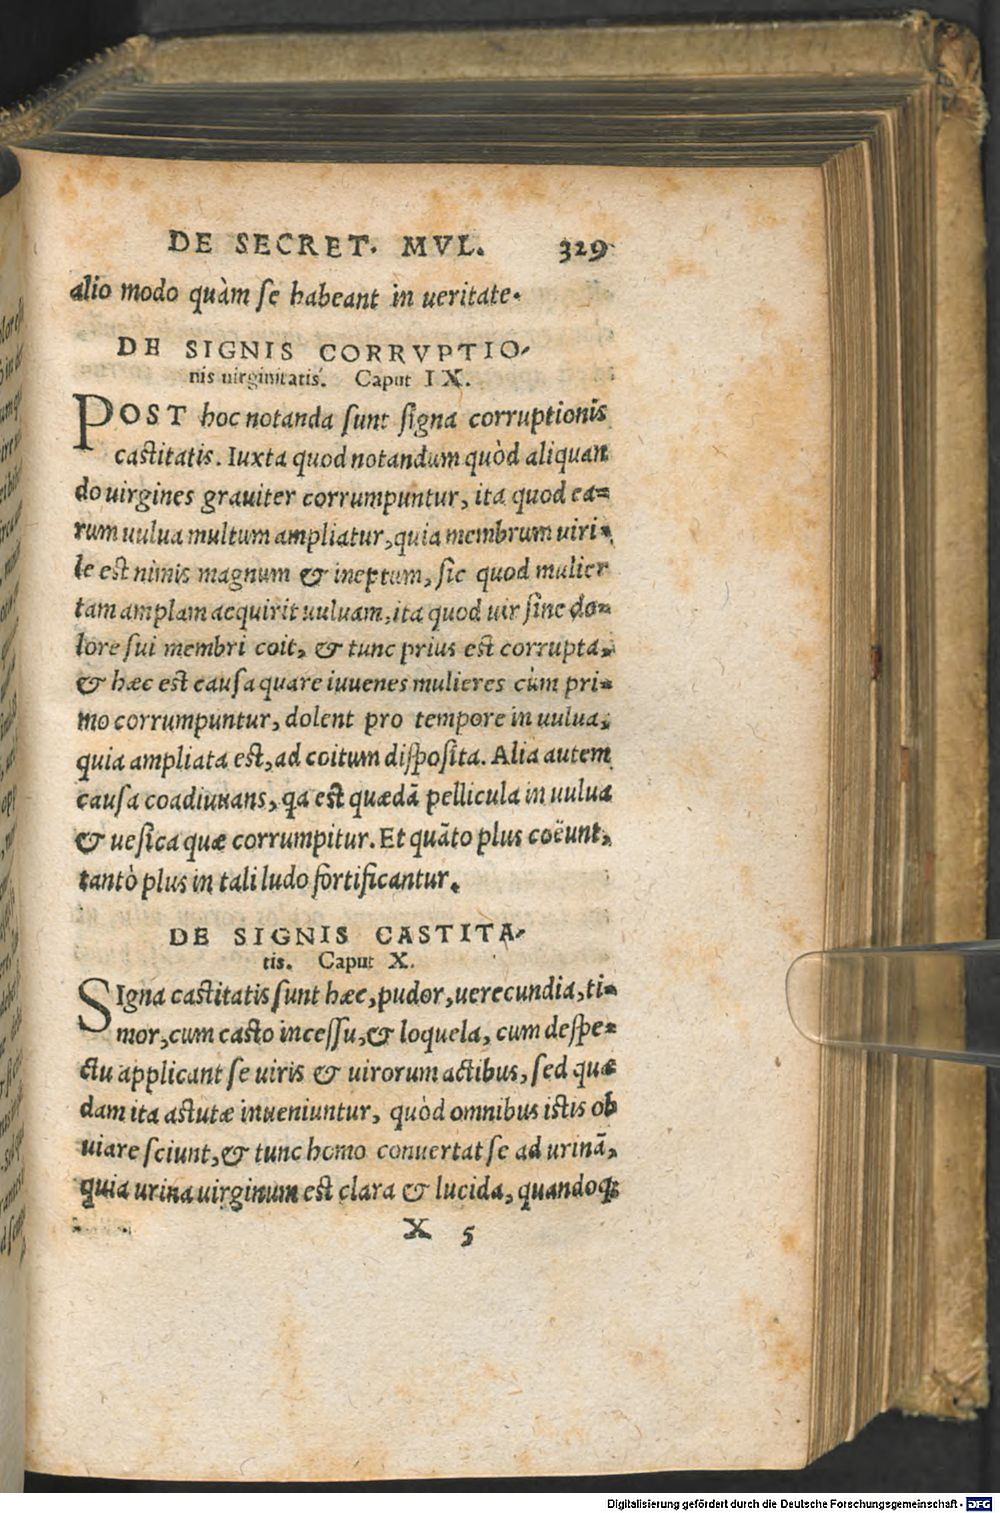 DE SECRET. MVL. 329
alio modo quàm se habeant in ueritate.
DE SIGNIS CORRVPTIO-
nis uirginitatis. Caput IX.
POST hoc notanda sunt signa corruptionis
castitatis. Iuxta quod notandum quòd aliquan
do uirgines grauiter corrumpuntur, ita quod ea-
rum uulua multum ampliatur, quia membrum uiri-
le est nimis magnum & ineptum, sic quod mulier
tam amplam acquirit uuluam, ita quod uir sine do-
lore sui membri coit, & tunc prius est corrupta,
& hæc est causa quare iuuenes mulieres cùm pri-
mo corrumpuntur, dolent pro tempore in uulua,
quia ampliata est, ad coitum disposita. Alia autem
causa coadiuuans, qa est quædã pellicula in uulua
& uesica quæ corrumpitur. Et quãto plus coëunt,
tantò plus in tali ludo fortificantur.
DE SIGNIS CASTITA-
tis. Caput X.
SIgna castitatis sunt hæc, pudor, uerecundia, ti-
mor, cum casto incessu, & loquela, cum despe-
ctu applicant se uiris & uirorum actibus, sed quæ
dam ita astutæ inueniuntur, quòd omnibus istis ob
uiare sciunt, & tunc homo conuertat se ad urinã,
quia urina uirginum est clara & lucida, quandoq;
X 5
Digitalisierung gefördert durch die Deutsche Forschungsgemeinschaft - DFG